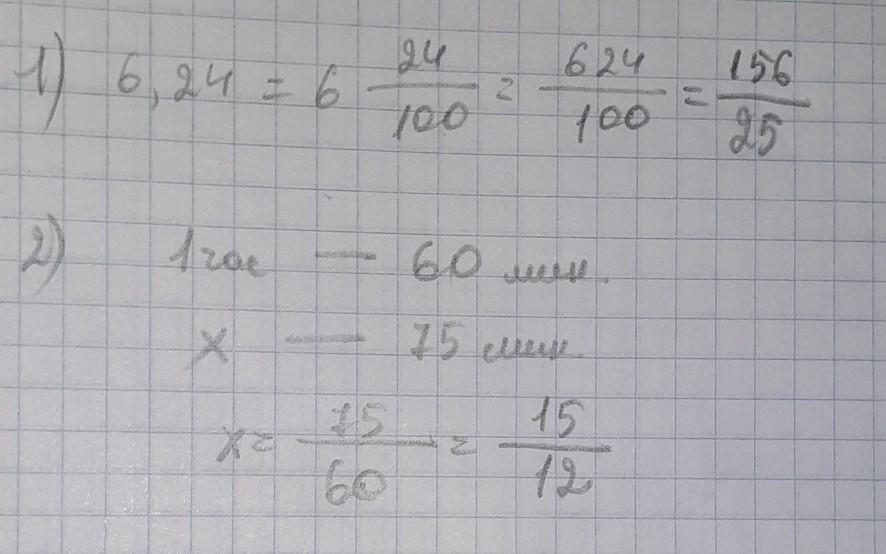 1) 6,24 = 6 24/100 = 624/100 = 156/25
2) 1 час — 60 мин.
x — 75 мин.
x = 75/60 = 15/12